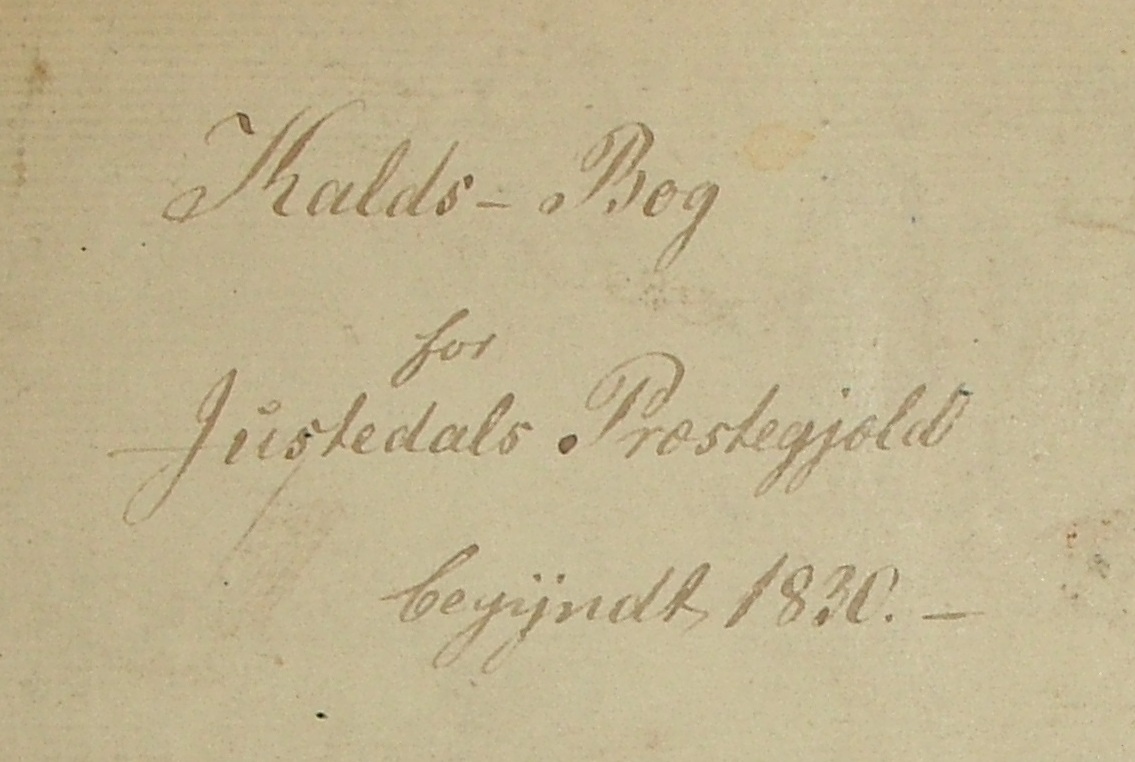 Kalds- Bog
for
Justedals Præstegjæld
begÿndt 1830. –